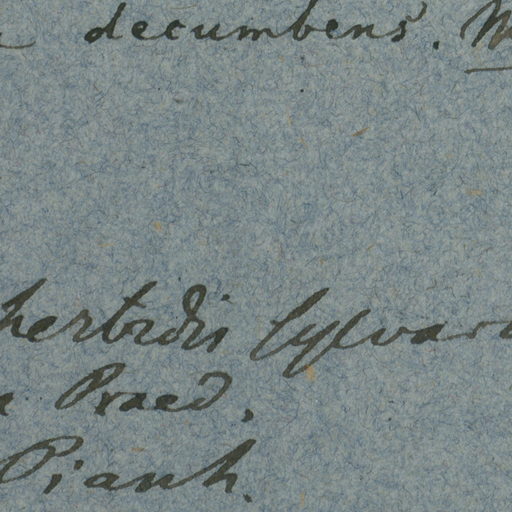 decumbens.
herbidis sylvar
Praed,
Pianh.